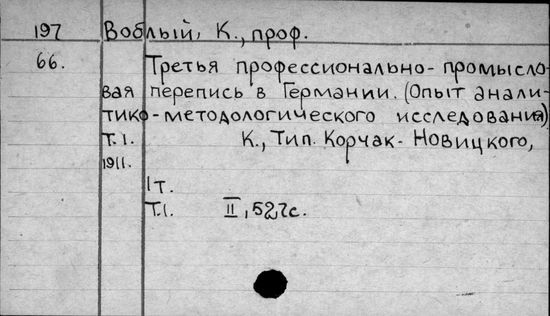 197 Воблый, К., проф.
66. Третья профессионально-промысло-
вая перепись в Германии. (Опыт анали-
тико-методологического исследования)
Т.I. К., Тип. Корчак-Новицкого,
1911.
1т.
Т.I. II, 527с.